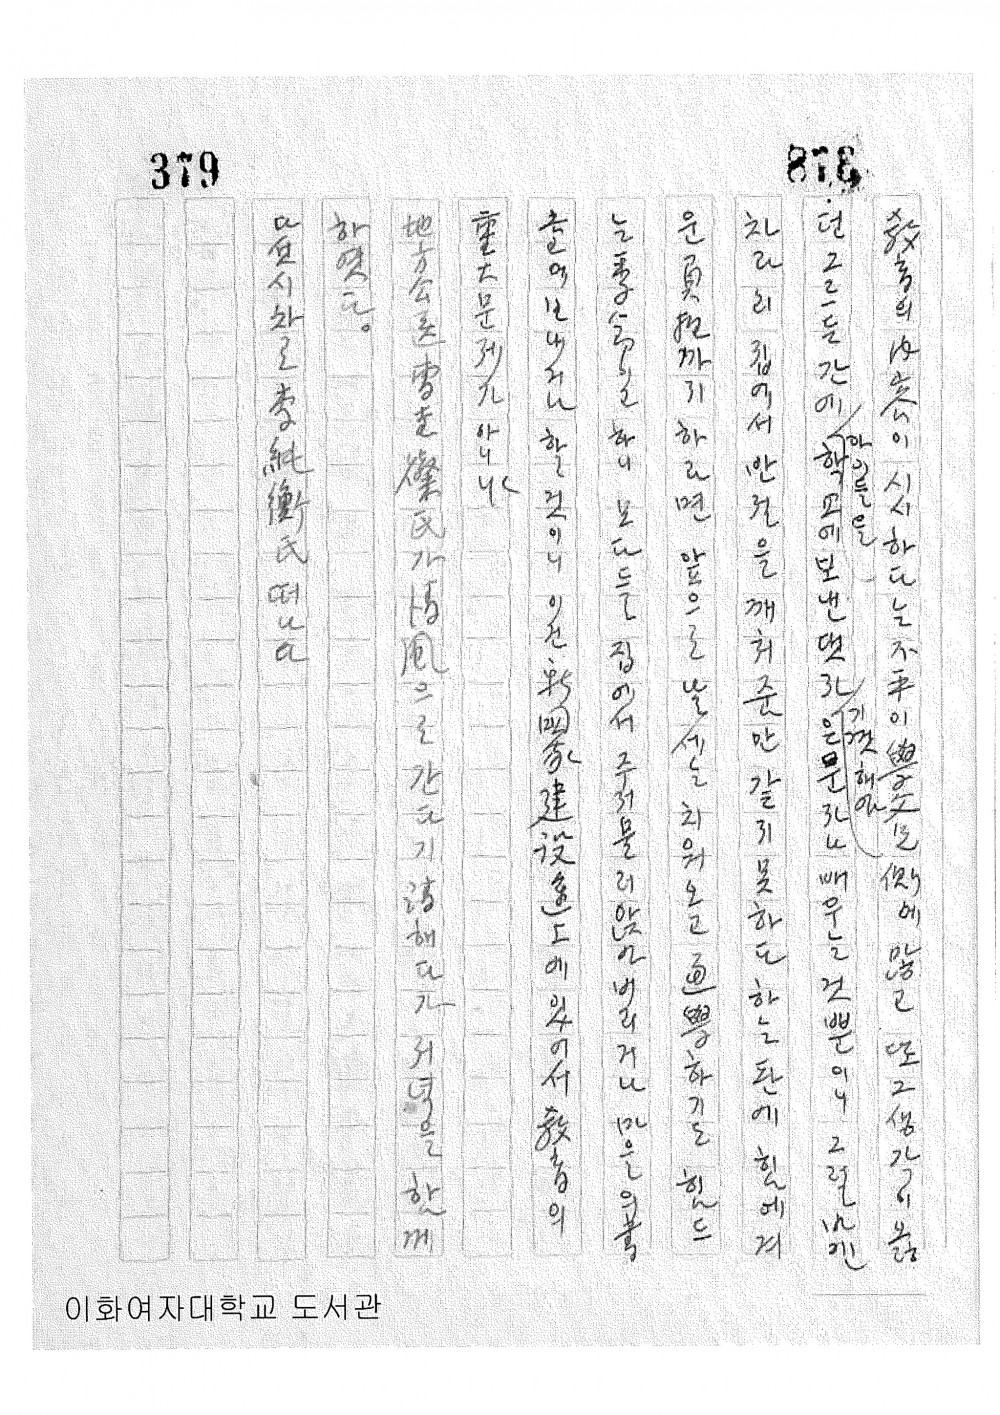 378
敎育의 內容이 시시하다는 不平이 學父兄 側에 많고 또 그 생각이 옳
던 그르든 간에 아이들을 학교에 보낸댓자 기껏해야 은문자나 배우는 것뿐이니 그럴 바엔
차라리 집에서 만 월을 깨쳐 준만 갈지 못하다 하는 판에 힘에 겨
운 負担까지 하라면 앞으로 날세는 치워 오고 通學하기도 힘드
는 季節이고 하니 모다들 집에서 주저물러앉아 버리거나 마을의
출여 보내거나 할 것이니 이건 新國家 建設途上에 있어서 敎育의
重大 문제가 아니냐
地方公医 李 燦氏가 淸風으로 간다기 請해다가 저녁을 함께
하엿다。
다섯시차로 李純衡氏 떠나다
379
이화여자대학교 도서관